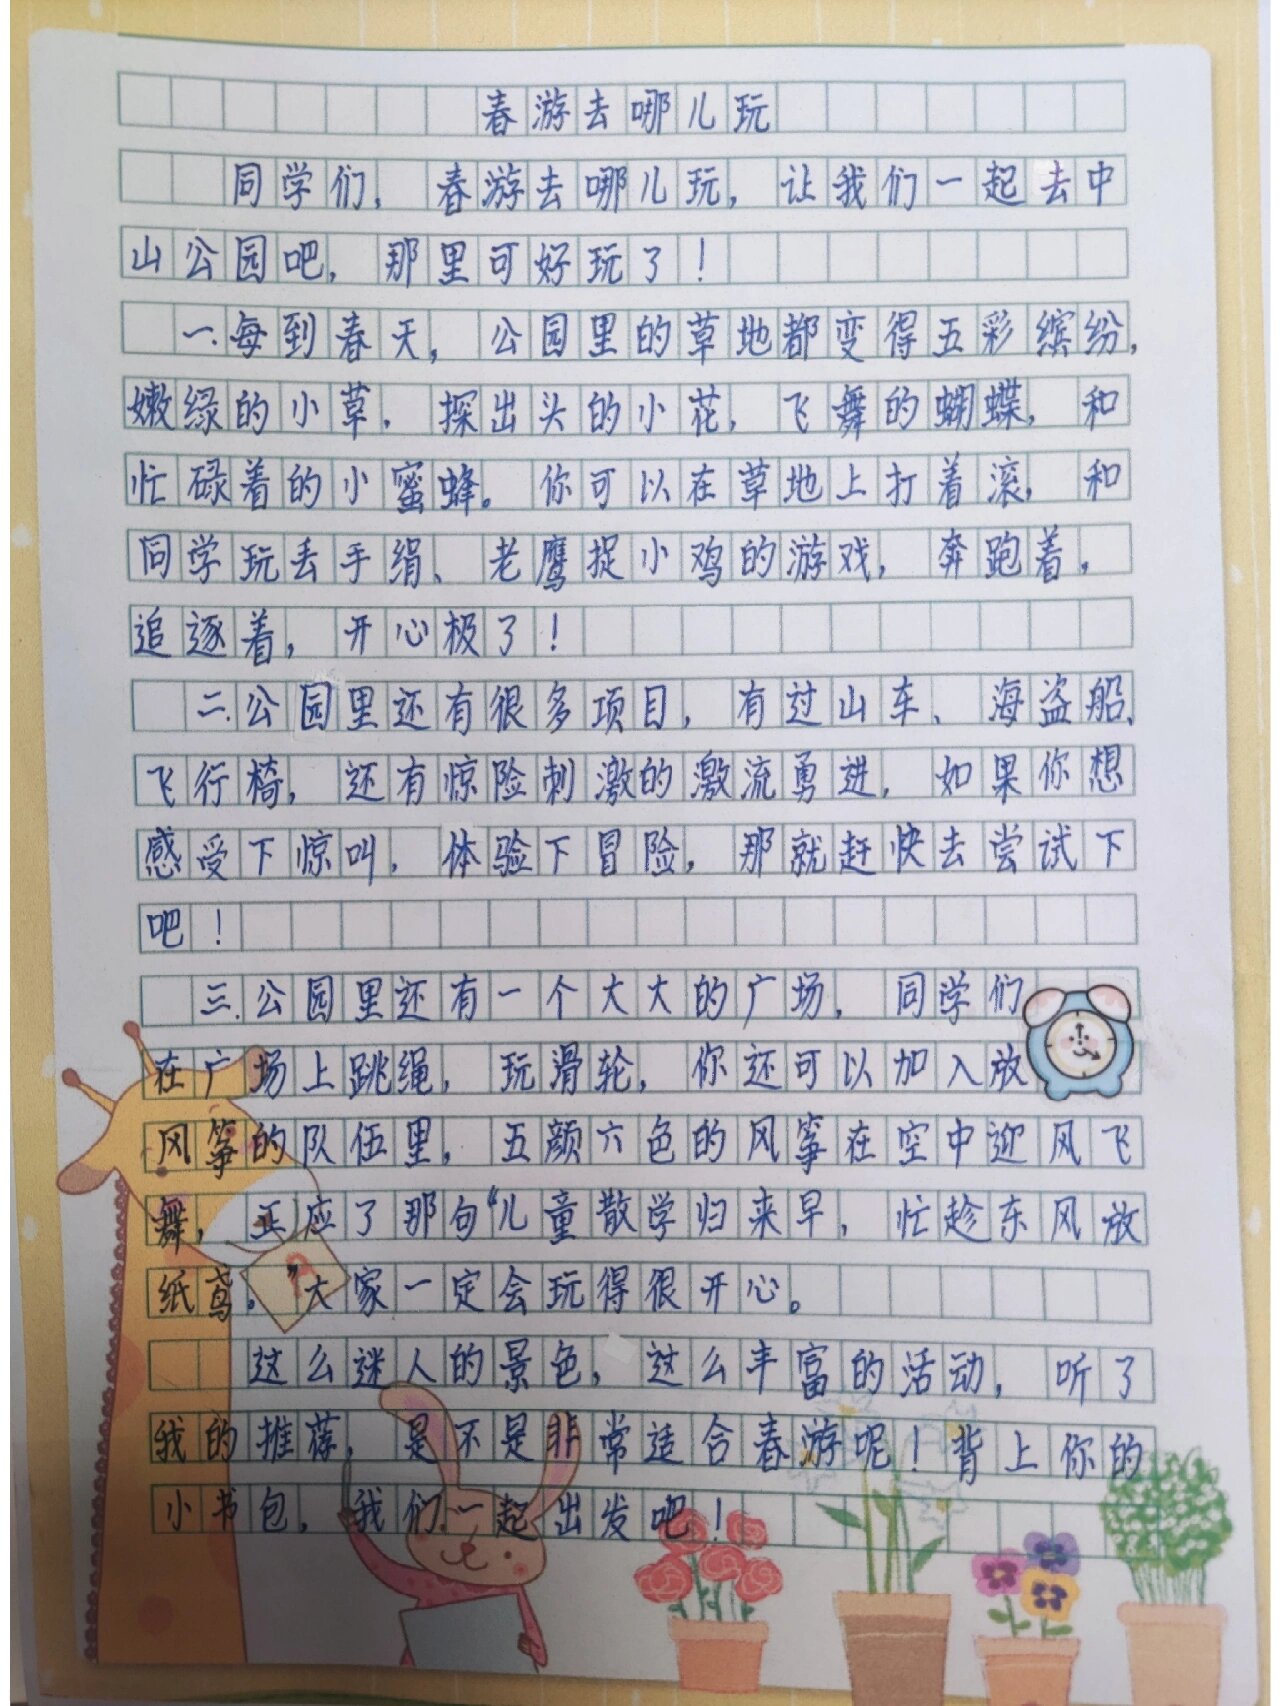 春游去哪儿玩
同学们，春游去哪儿玩，让我们一起去中
山公园吧，那里可好玩了！
一.每到春天，公园里的草地都变得五彩缤纷，
嫩绿的小草，探出头的小花，飞舞的蝴蝶，和
忙碌着的小蜜蜂。你可以在草地上打着滚，和
同学玩丢手绢、老鹰捉小鸡的游戏，奔跑着，
追逐着，开心极了！
二.公园里还有很多项目，有过山车、海盗船、
飞行椅，还有惊险刺激的激流勇进，如果你想
感受下惊叫，体验下冒险，那就赶快去尝试下
吧！
三.公园里还有一个大大的广场，同学们
在广场上跳绳，玩滑轮，你还可以加入放
风筝的队伍里，五颜六色的风筝在空中迎风飞
舞，正应了那句“儿童散学归来早，忙趁东风放
纸鸢。”大家一定会玩得很开心。
这么迷人的景色，这么丰富的活动，听了
我的推荐，是不是非常适合春游呢！背上你的
小书包，我们一起出发吧！